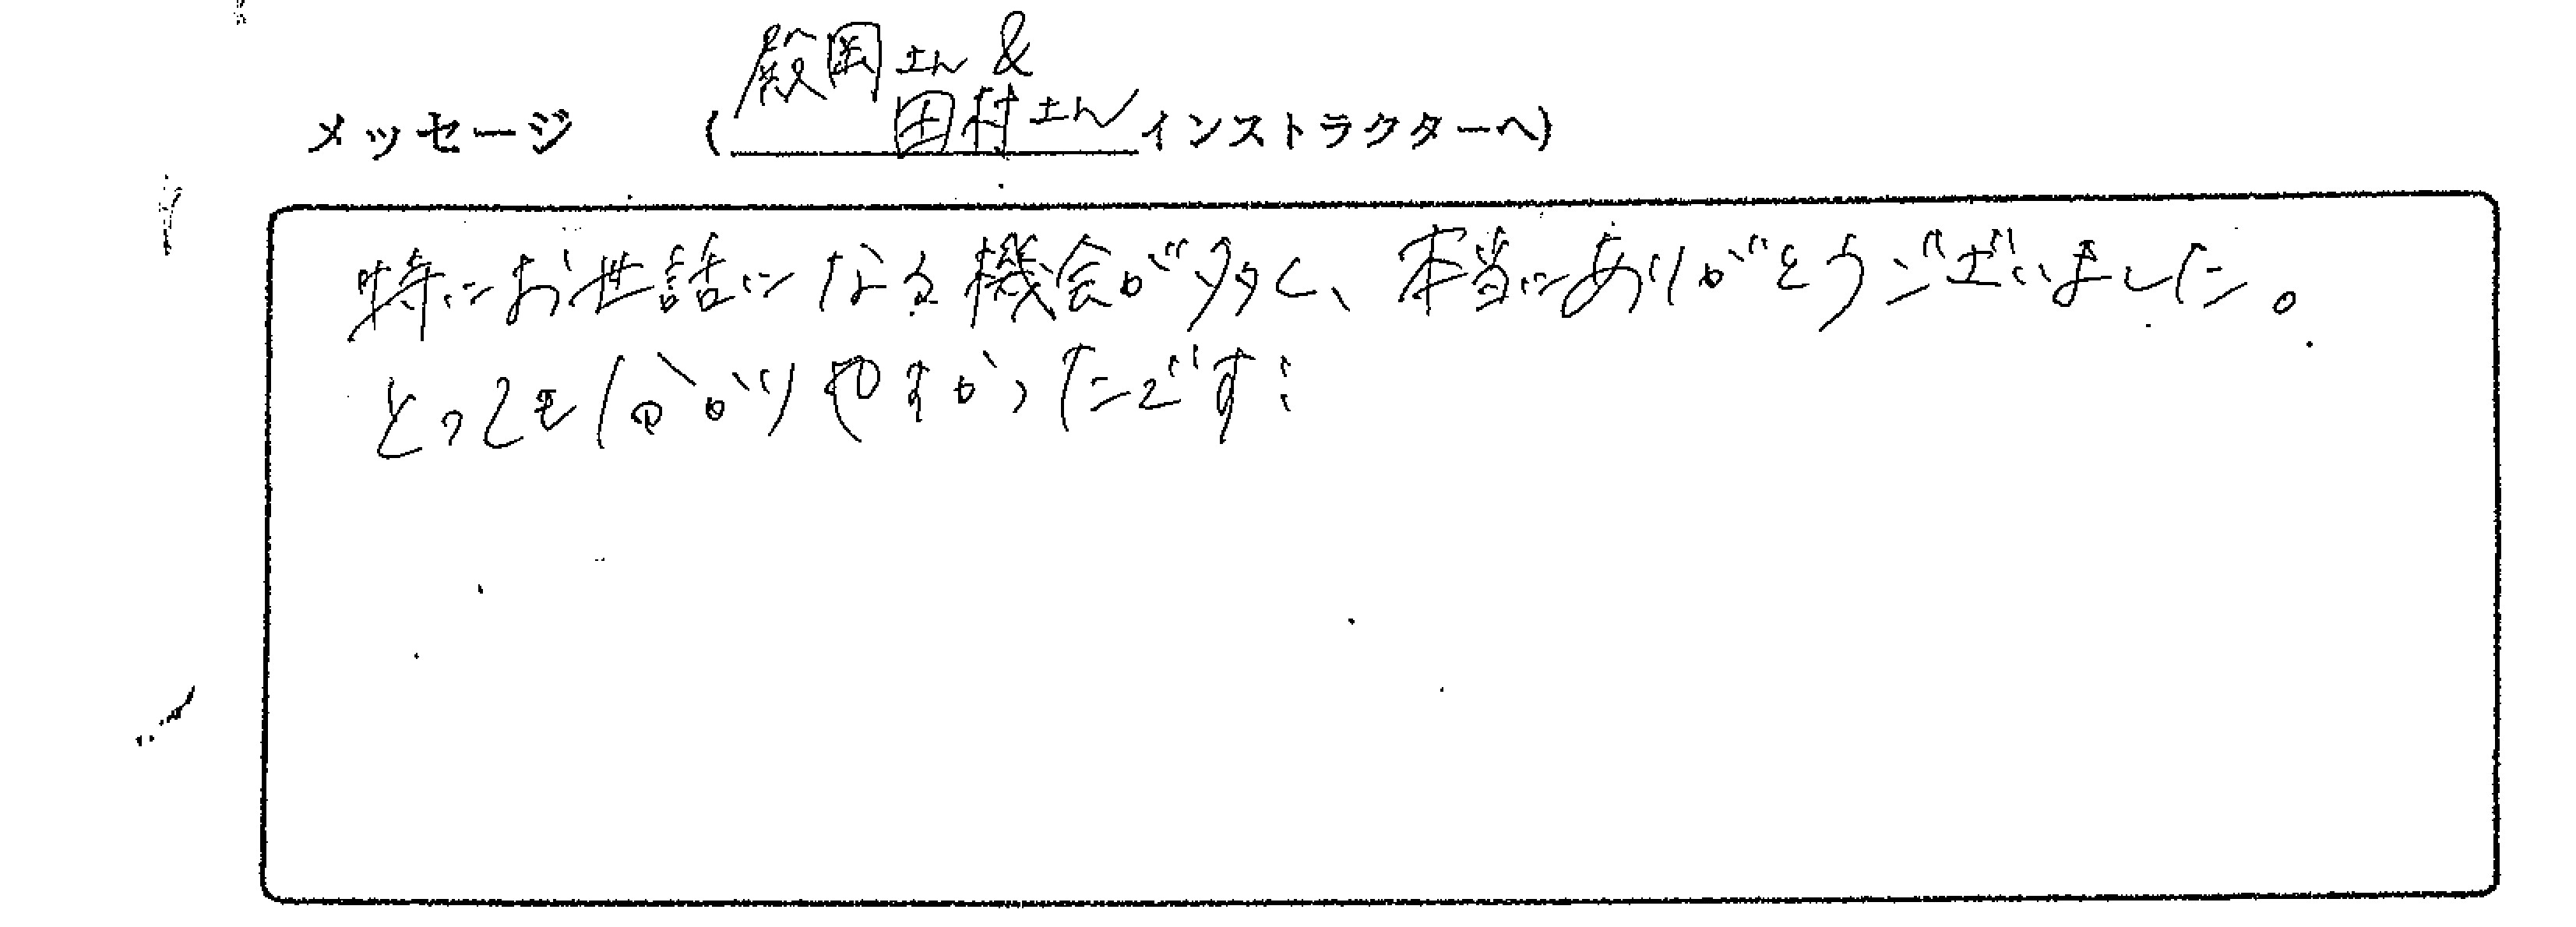 殿岡さん&
メッセージ (田村さんインストラクターへ)
特にお世話になる機会が多く、本当にありがとうございました。
とっても分かりやすかったです!